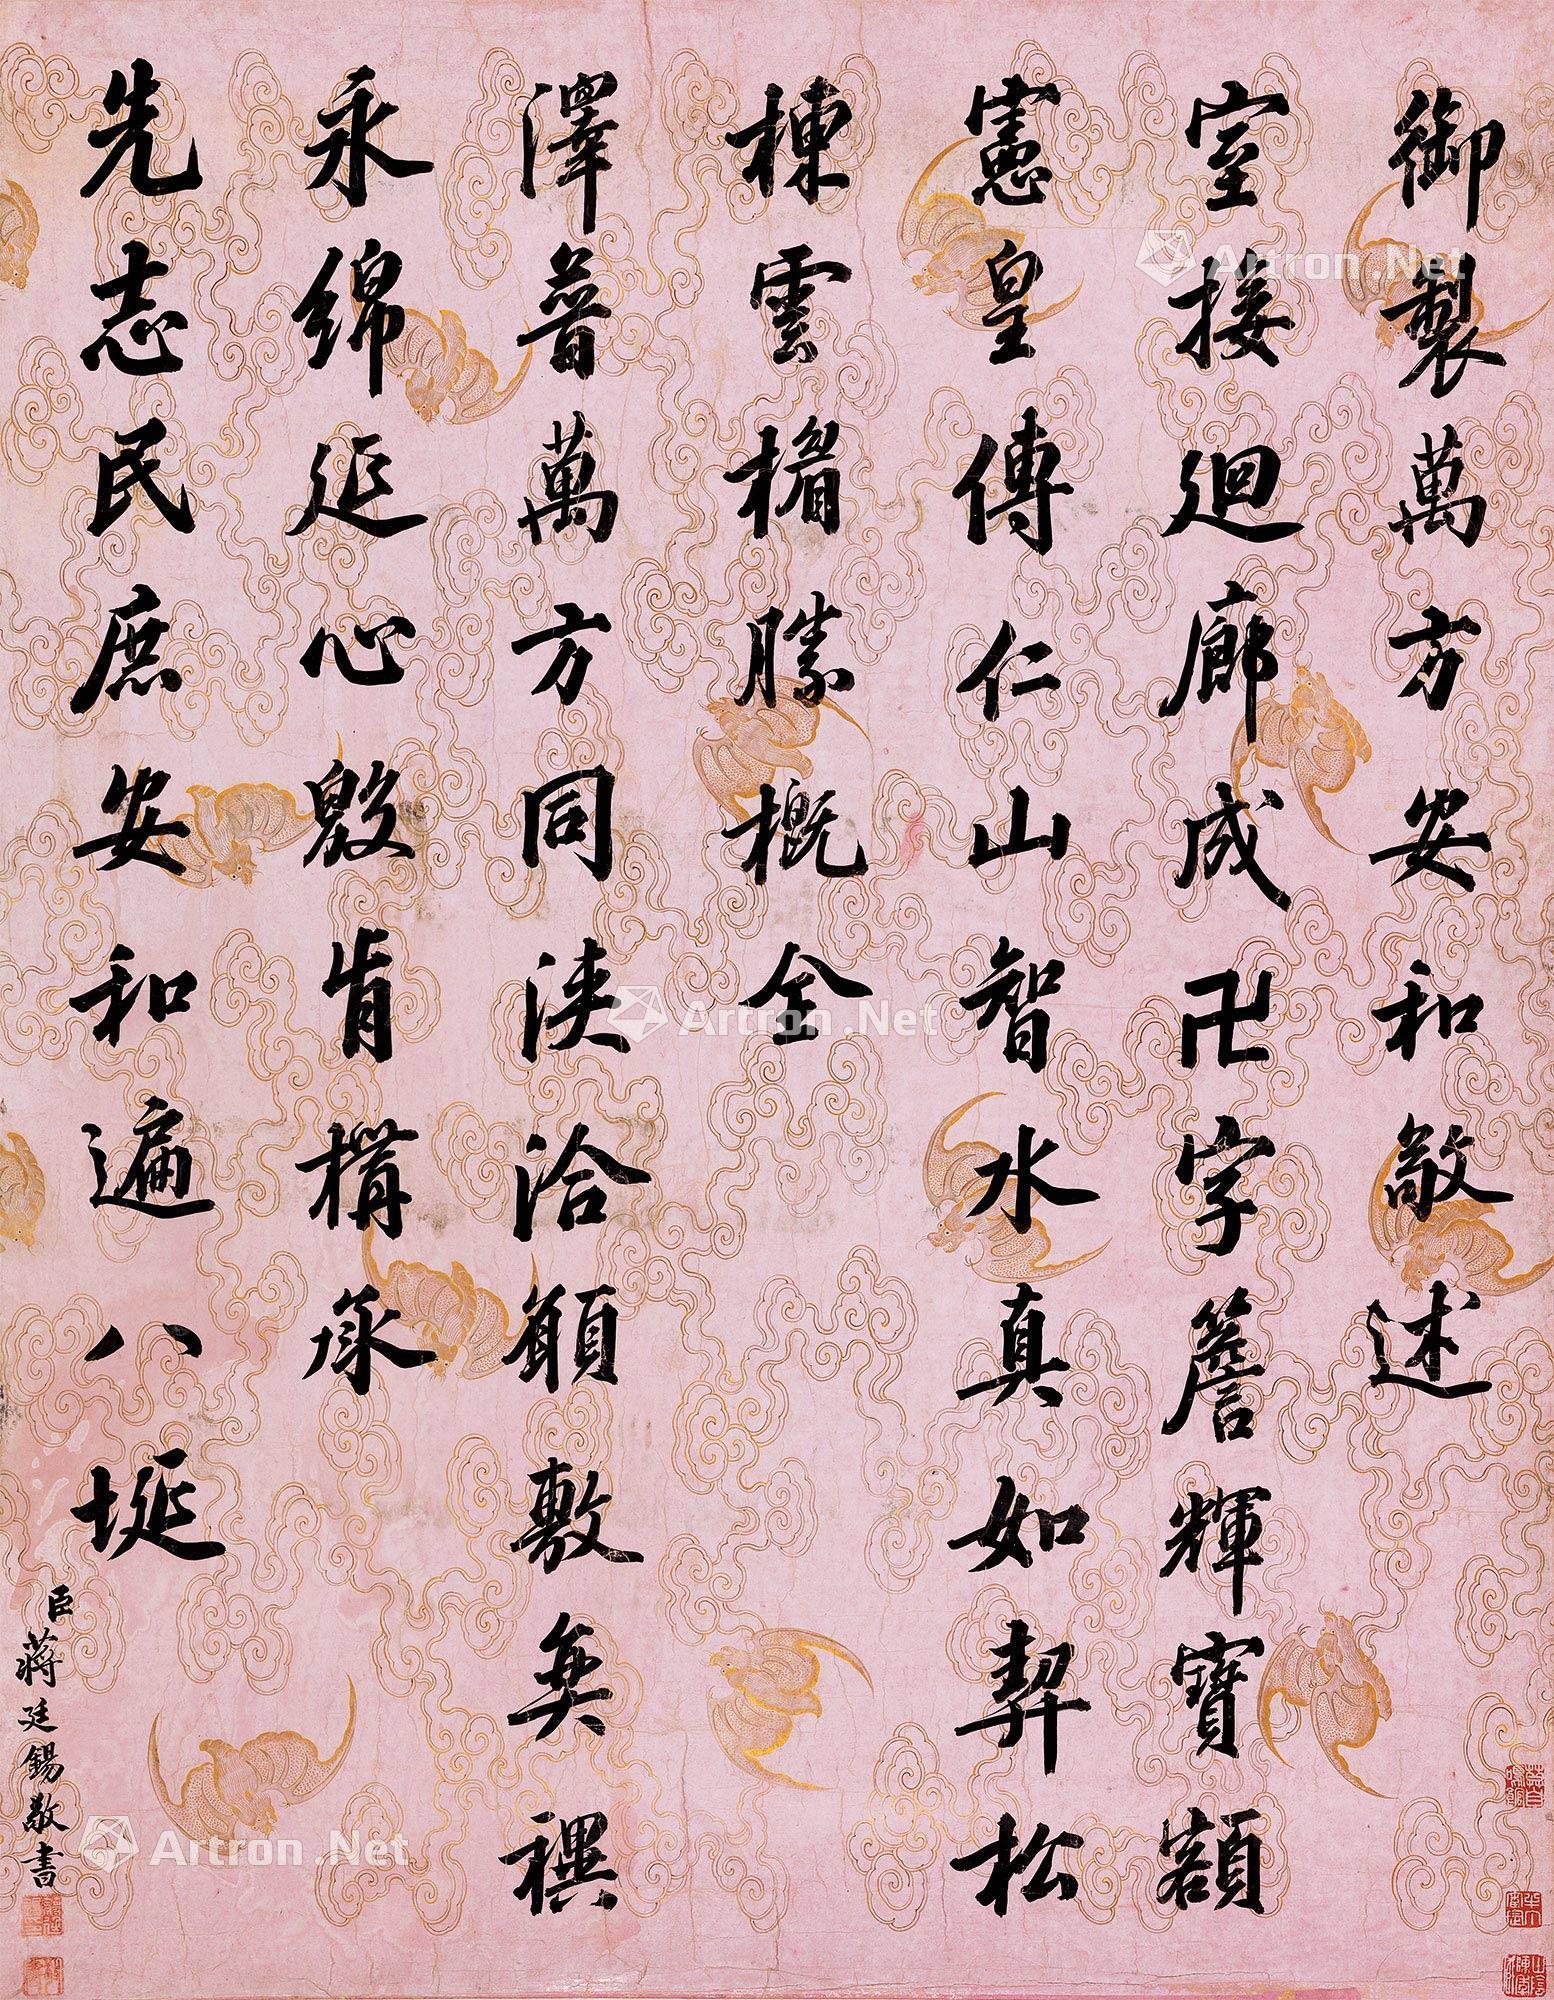 御製萬方安和敬述
室接迴廊成卍字簷輝寶額
憲皇傳仁山智水真如契松
棟雲楣勝概全
澤普萬方同浹洽願敷奕禩
永綿延心殷肯構承
先志民庶安和遍八埏
臣蔣廷錫敬書
Artron.Net
Artron.Net
Artron.Net